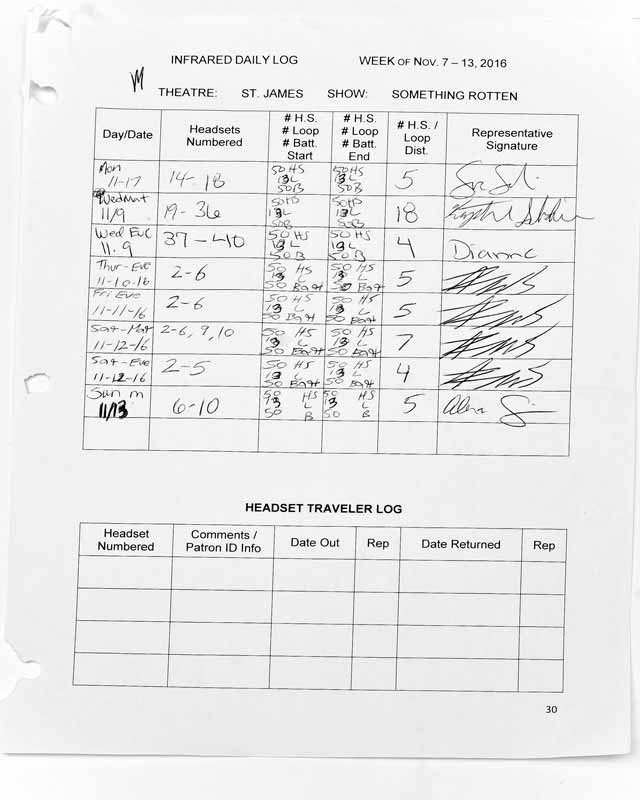 INFRARED DAILY LOG WEEK OF NOV. 7 – 13, 2016
THEATRE: ST. JAMES SHOW: SOMETHING ROTTEN
Day/Date Headsets Numbered # H.S. # Loop # Batt. Start # H.S. # Loop # Batt. End # H.S. / Loop Dist. Representative Signature
Mon 11-17 14-18 50 HS 13L 50B 50 HS 13L 50B 5
Wed Mat 11/9 19-36 50HS 13L 50B 50HS 13L 50B 18
Wed Eve 11.9 37-40 50 HS 13L 50B 50 HS 13L 50B 4 Dianne
Thur-Eve 11-10-16 2-6 50 HS 13 L 50 Batt 50 HS 13 L 50 Batt 5
Fri Eve 11-11-16 2-6 50 HS 13 L 50 Batt 50 HS 13 L 50 Batt 5
Sat-Mat 11-12-16 2-6, 9, 10 50 HS 13 L 50 Batt 50 HS 13 L 50 Batt 7
Sat-Eve 11-12-16 2-5 50 HS 13 L 50 Batt 50 HS 13 L 50 Batt 4
Sun m 11/13 6-10 50 HS 13 L 50 B 50 HS 13 L 50 B 5
HEADSET TRAVELER LOG
Headset Numbered Comments / Patron ID Info Date Out Rep Date Returned Rep
30